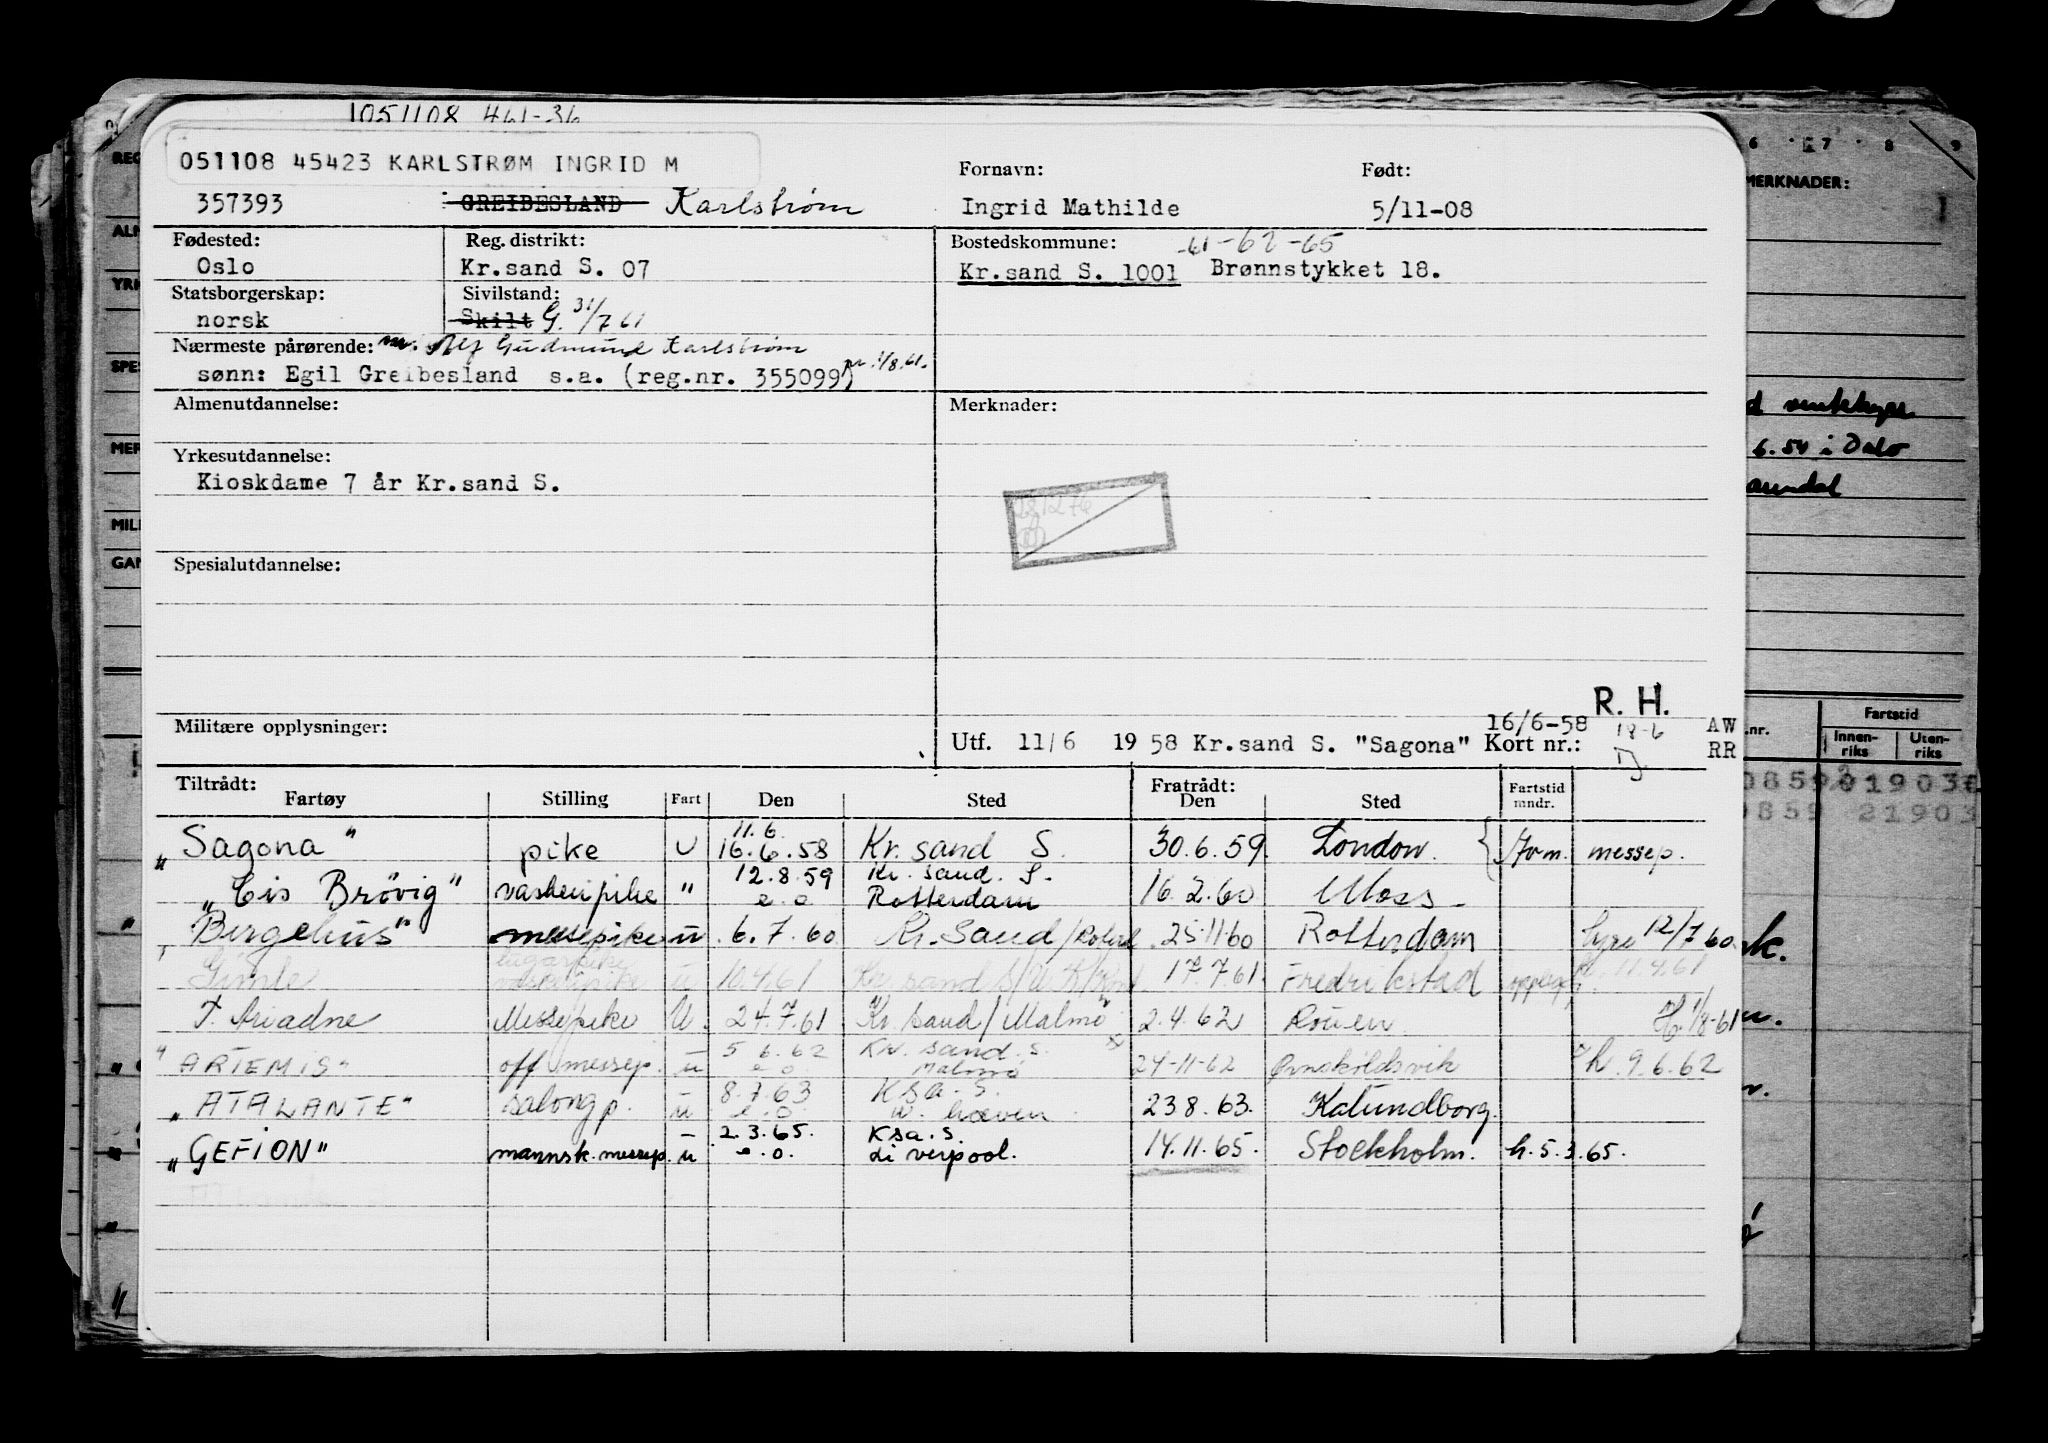 1051108 461-36
051108 45423 KARLSTRØM INGRID M
Fornavn: Født:
357393 GREIBESLAND Karlstrøm Ingrid Mathilde 5/11-08
Fødested: Reg. distrikt: Bostedskommune: -61-62-65
Oslo Kr.sand S. 07 Kr.sand S. 1001 Brønnstykket 18.
Statsborgerskap: Sivilstand:
norsk Skilt G. 31/7 61
Nærmeste pårørende: m. Alf Gudmund Karlstrøm
sønn: Egil Greibesland s.a. (reg.nr. 355099) 1/8.61.
Almenutdannelse: Merknader:
Yrkesutdannelse:
Kioskdame 7 år Kr.sand S.
Spesialutdannelse:
R. H.
Militære opplysninger: 16/6-58 18-6 AW
Utf. 11/6 1958 Kr.sand S. "Sagona" Kort nr.: RR
Tiltrådt: Fratrådt: Fartstid
Fartøy Stilling Fart Den Sted Den Sted mndr.
11.6.
„Sagona" pike U 16.6.58 Kr. sand S. 30.6.59. London. messep.
12.8.59 Kr. sand. S.
„Cis Brøvig" vaskeripike " e.o. Rotterdam 16.2.60 Moss
"Borgehus" messepike u 6.7.60 Kr. Sand 25.11.60 Rotterdam 12/7 60
lugarpike
Gimle vaskeripike u 10.4.61 Kr. sand S 17.7.61. Fredrikstad 11.4.61
T. Ariadne Messepike U. 24.7.61 Kr. sand / Malmö 2.4.62 Rouen H. 1/8-61
5 6.62 Kr. sand. S.
"ARTEMIS" off messep. u e.o. Malmö 24-11-62 Ørnskøldsvik h. 9.6.62
8.7.63 Ksa. S.
„ATALANTE" salongp. u e.o. W. haven 23.8.63. Kalundborg.
2.3.65. Ksa. S.
„GEFION" mannsk. messep. u e.o. Liverpool. 14.11.65. Stockholm. h. 5.3.65.
MERKNADER:
6.54 i Oslo
Fartstid
Innenriks Utenriks